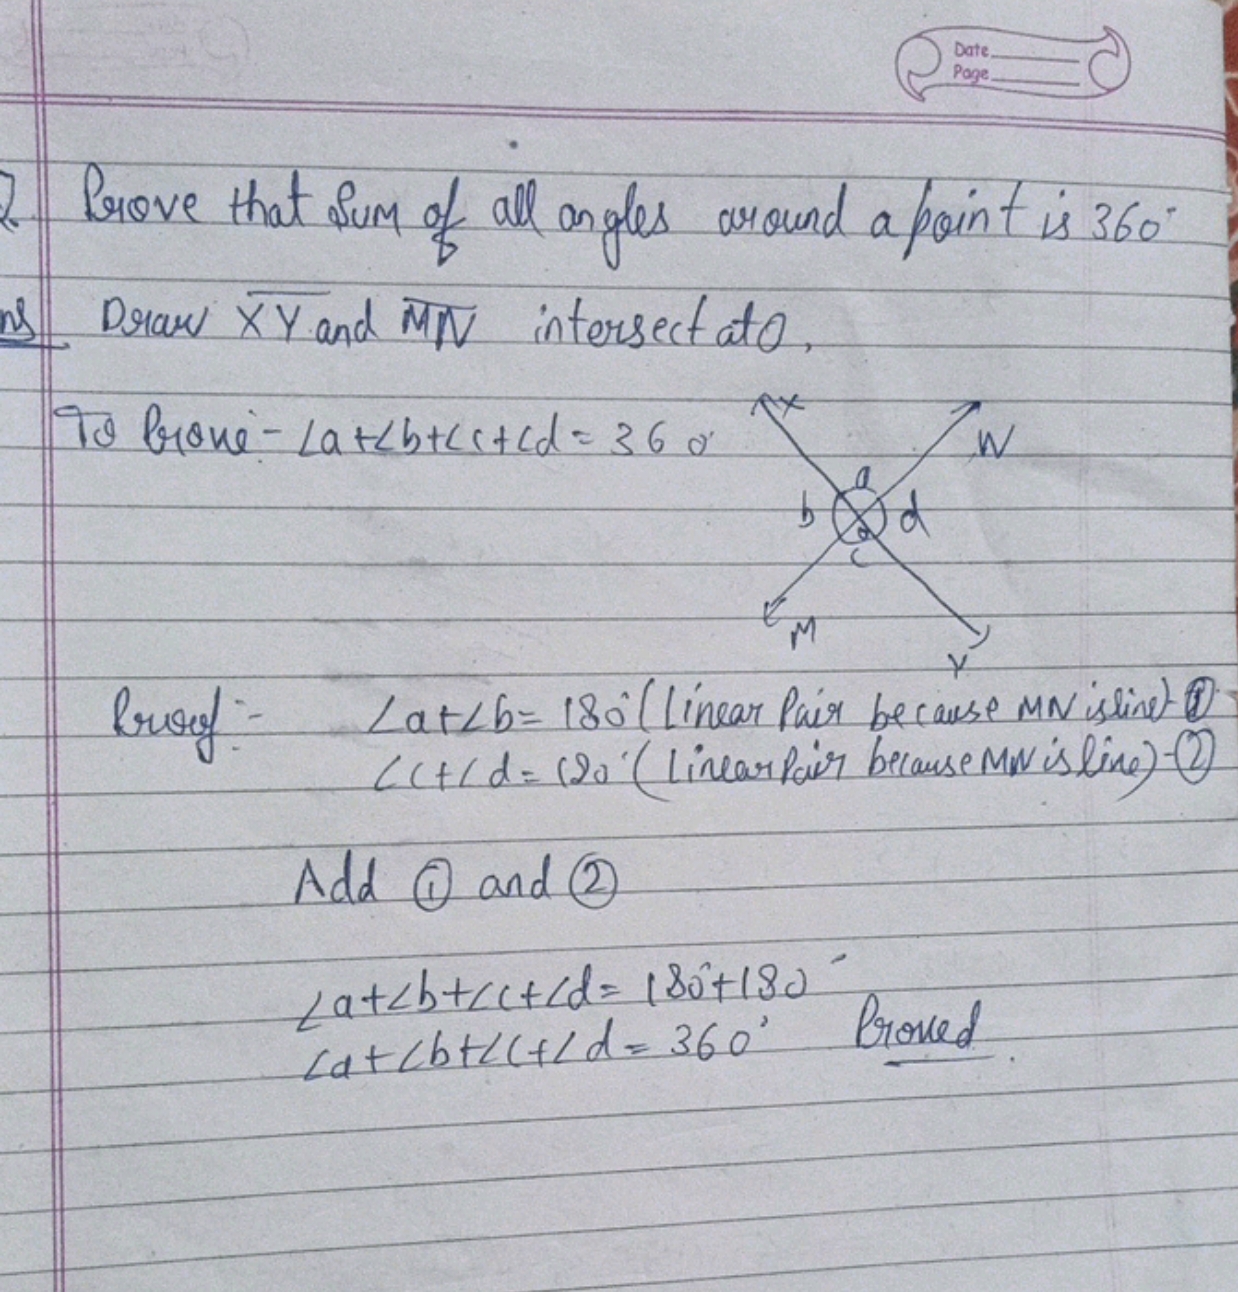 Date
Page
Q Prove that Sum of all angles around a point is 360°
Ans Draw XY and MN intersect at O.
To Prove:- ∠a+∠b+∠c+∠d = 360°
X
N
a
b
d
O
c
M
Y
Proof:- ∠a+∠b= 180° (Linear Pair because MN is line)-①
∠c+∠d= 180° (Linear Pair because MN is line)-②
Add ① and ②
∠a+∠b+∠c+∠d= 180°+180°
∠a+∠b+∠c+∠d= 360° Proved.